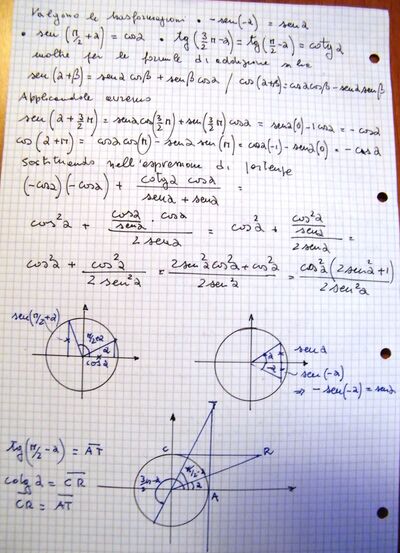 Valgono le trasformazioni • -sen(-α) = sen α
• sen (π/2 + α) = cos α • tg (3/2 π - α) = tg (π/2 - α) = cotg α
inoltre per le formule di addizione si ha
sen (α+β) = sen α cos β + sen β cos α / cos (α+β) = cos α cos β - sen α sen β
Applicandole avremo
sen (α + 3/2 π) = sen α cos (3/2 π) + sen (3/2 π) cos α = sen α (0) - 1 cos α = - cos α
cos (α + π) = cos α cos (π) - sen α sen (π) = cos α (-1) - sen α (0) = - cos α
Sostituendo nell'espressione di partenza
(-cos α) (-cos α) + cotg α cos α / sen α + sen α =
cos² α + cos α / sen α · cos α / 2 sen α = cos² α + cos² α / sen α / 2 sen α =
cos² α + cos² α / 2 sen² α = 2 sen² α cos² α + cos² α / 2 sen² α = cos² α (2 sen² α + 1) / 2 sen² α
sen (π/2 + α)
π/2 + α
α
cos α
x
x
α
-α
sen α
sen (-α)
⇒ - sen (-α) = sen α
tg (π/2 - α) = AT
cotg α = CR
CR = AT
T
C
R
π/2 - α
α
A